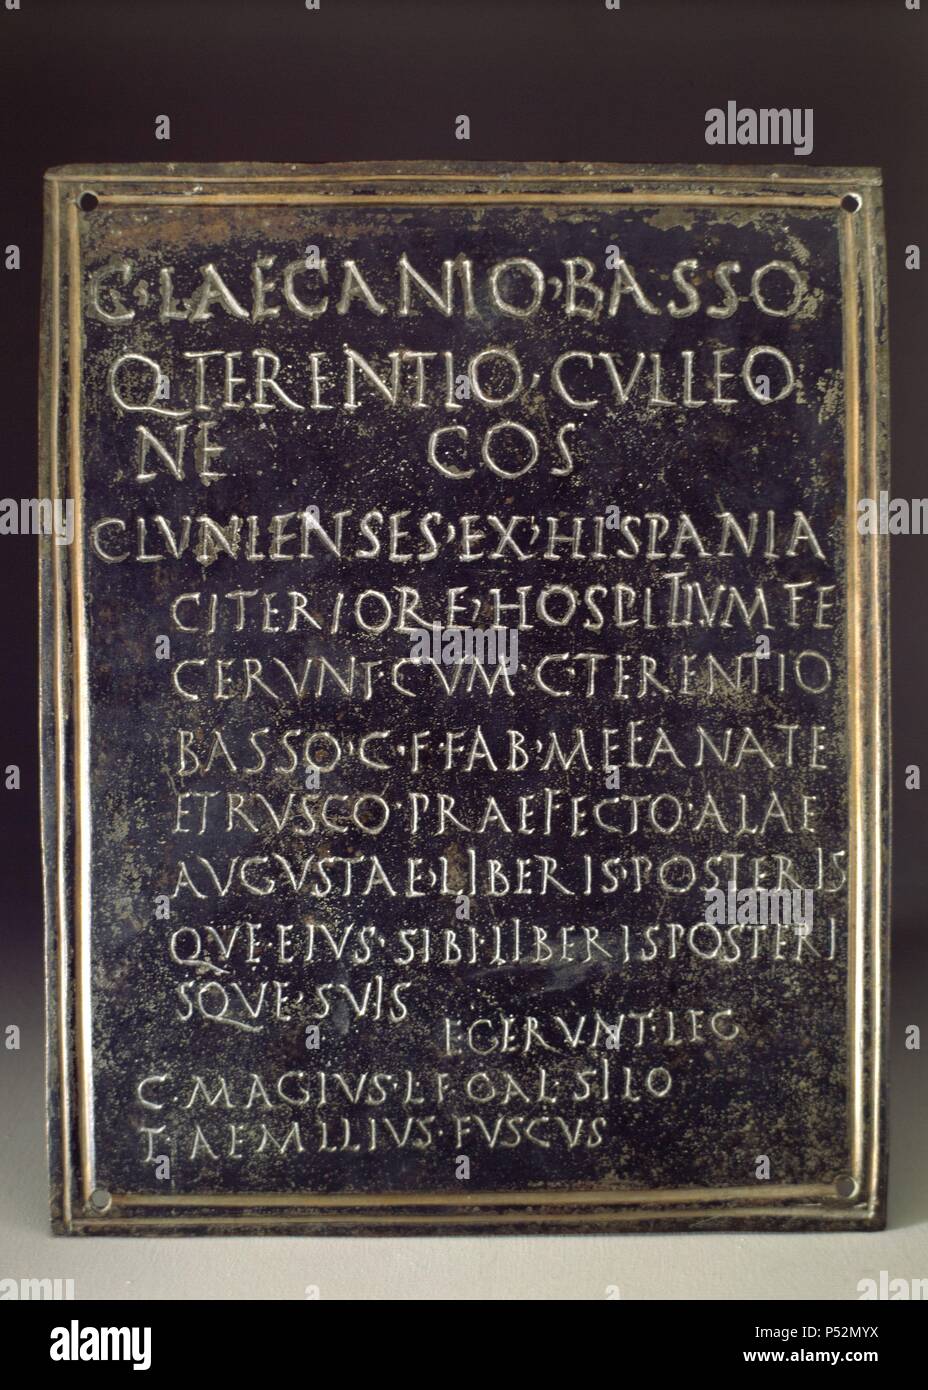 C·LAECANIO·BASSO
Q·TERENTIO·CVLLEO
NE COS
CLVNIENSES·EX·HISPANIA
CITERIORE·HOSPITIVM FE
CERVNT·CVM C·TERENTIO
BASSO·C·F·FAB·MEFANATE
ETRVSCO·PRAEFECTO·ALAE
AVGVSTAE·LIBERIS·POSTERIS
QVE·EIVS·SIBI·LIBERIS POSTERI
SQVE·SVIS
EGERVNT·LEG
C·MAGIVS·L·F·GAL·SILO
T·AEMILIVS·FVSCVS
alamy
alamy
a
alamy
Image ID: P52MYX
www.alamy.com